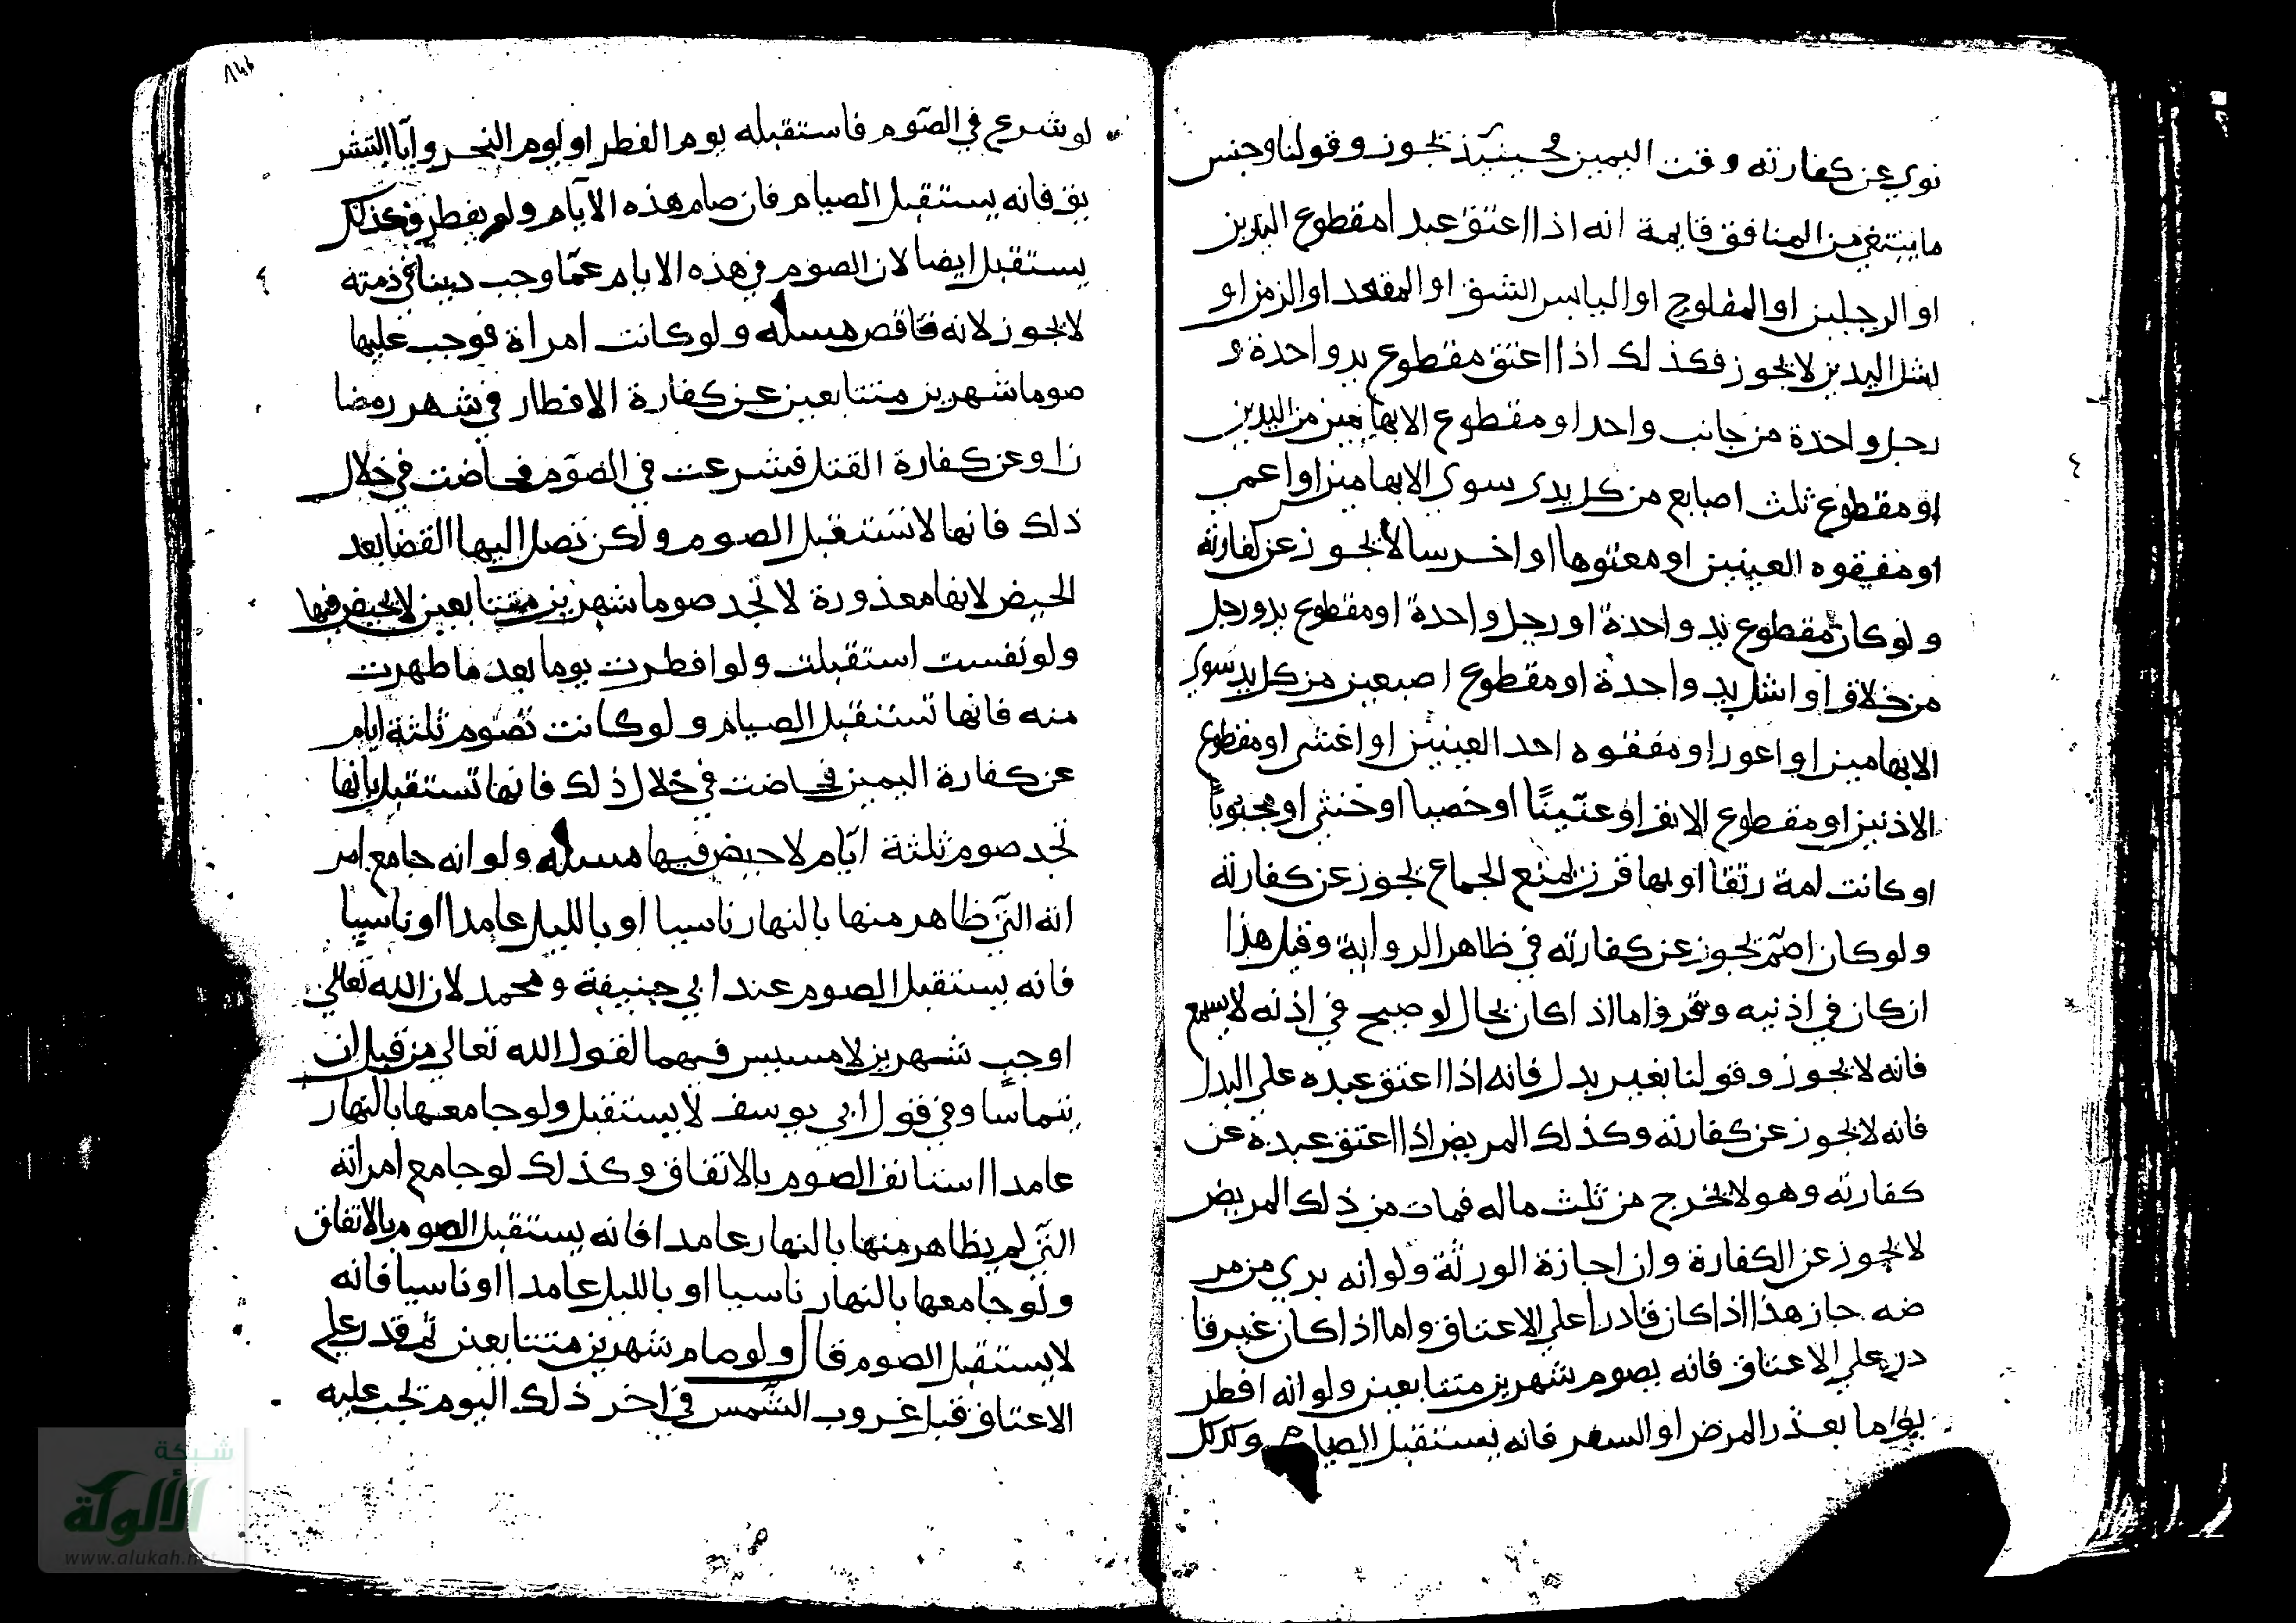 نوي عن كفارته وقت اليمين فحينيذ يجوز وقولنا وجنس
ما يبتغي من المنافق قايمة انه اذا اعتق عبدا مقطوع اليدين
او الرجلين او المفلوج او اليابس الشق او المقعد او الزمن او
اشل اليدين لا يجوز فكذلك اذا اعتق مقطوع يد واحدة و
رجل واحدة من جانب واحد او مقطوع الابهامين من اليدين
او مقطوع ثلث اصابع من كل يدي سوي الابهامين او اعمي
او مفقوه العينين او معتوها او اخرسا لا يجوز عن كفارته
ولو كان مقطوع يد واحدة او رجل واحدة او مقطوع يد ورجل
من خلاف او اشل يد واحدة او مقطوع اصبعين من كل يد سوي
الابهامين او اعور او مفقوه احد العينين او اعشي او مقطوع
الاذنين او مقطوع الانف او عنّينًا او خصيا او خنثي او مجبوبًا
او كانت امة رتقا او بها قرن يمنع الجماع يجوز عن كفارته
ولو كان اصمّ يجوز عن كفارته في ظاهر الرواية وقيل هذا
ان كان في اذنيه وقر واما اذا كان بحال لو صيح في اذنه لا يسمع
فانه لا يجوز وقولنا بغير بدل فانه اذا اعتق عبده علي البدل
فانه لا يجوز عن كفارته وكذلك المريض اذا اعتق عبده عن
كفارته وهو لا يخرج من ثلث ماله فمات من ذلك المريض
لا يجوز عن الكفارة وان اجازة الورثة ولو انه بري من مر
ضه جاز هذا اذا كان قادرا علي الاعتاق واما اذا كان غير قا
در علي الاعتاق فانه يصوم شهرين متتابعين ولو انه افطر
يوما بعذر المرض او السفر فانه يستقبل الصيام وكذلك
لو شرع في الصّوم فاستقبله يوم الفطر او يوم النحر وايّام التشر
يق فانه يستقبل الصيام فان صام هذه الايّام ولم يفطر فكذلك
يستقبل ايضا لان الصوم في هذه الايام عمّا وجب دينا في ذمته
لا يجوز لانه ناقص مسله ولو كانت امراة فوجب عليها
صوما شهرين متتابعين عن كفارة الافطار في شهر رمضا
ن او عن كفارة القتل فشرعت في الصّوم فحاضت في خلال
ذلك فانها لا تستقبل الصوم ولكن تصل اليها القضا بعد
الحيض لانها معذورة لا تجد صوما شهرين متتابعين لا يحيض فيها
ولو نفست استقبلت ولو افطرت يوما بعد ما طهرت
منه فانها تستقبل الصيام ولو كانت تصوم ثلثة ايام
عن كفارة اليمين فحاضت في خلال ذلك فانها تستقبل بانها
تجد صوم ثلثة ايّام لا حيض فيها مسله ولو انه جامع امر
اته التي ظاهر منها بالنهار ناسيا او بالليل عامدا او ناسيا
فانه يستقبل الصوم عند ابي حنيفة ومحمد لان الله تعالي
اوجب شهرين لا مسيس فيهما لقول الله تعالي من قبل ان
يتماسّا وفي قول ابي يوسف لا يستقبل ولو جامعها بالنهار
عامدا استانف الصوم بالاتفاق وكذلك لو جامع امراته
التي لم يظاهر منها بالنهار عامدا فانه يستقبل الصوم بالاتفاق
ولو جامعها بالنهار ناسيا او بالليل عامدا او ناسيا فانه
لا يستقبل الصوم قال ولو صام شهرين متتابعين ثم قدر علي
الاعتاق قبل غروب الشمس في اخر ذلك اليوم تجب عليه
شبكة
الألوكة
www.alukah.net